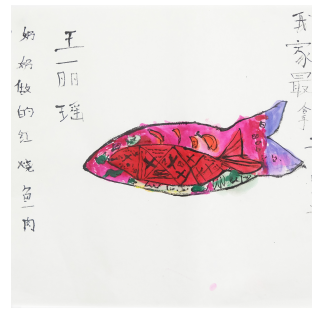 我家最拿
王一丽瑶
奶奶做的红烧鱼肉